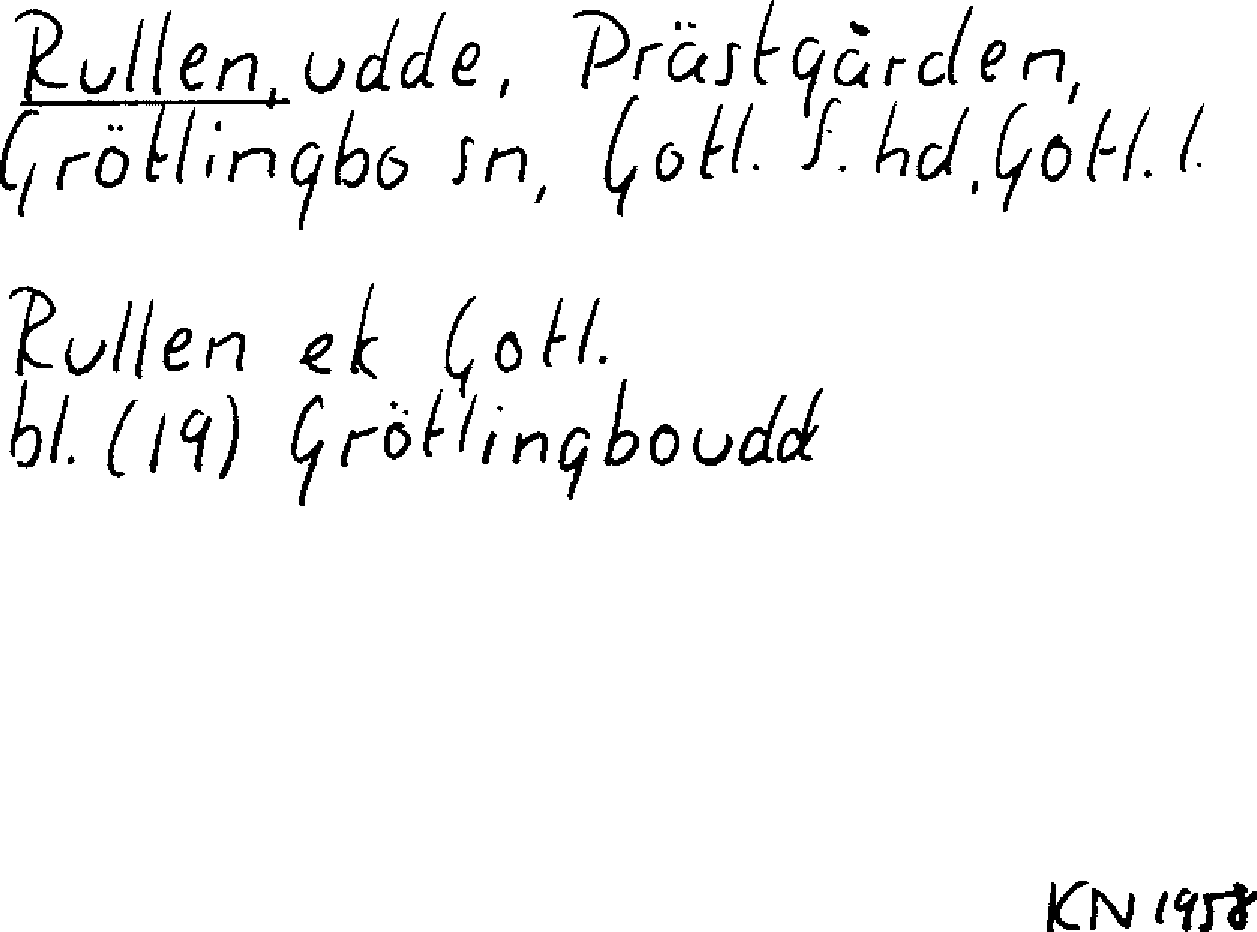 Rullen, udde, Prästgården,
Grötlingbo sn, Gotl. S. hd, Gotl. l.
Rullen ek Gotl.
bl. (19) Grötlingboudd
KN 1958